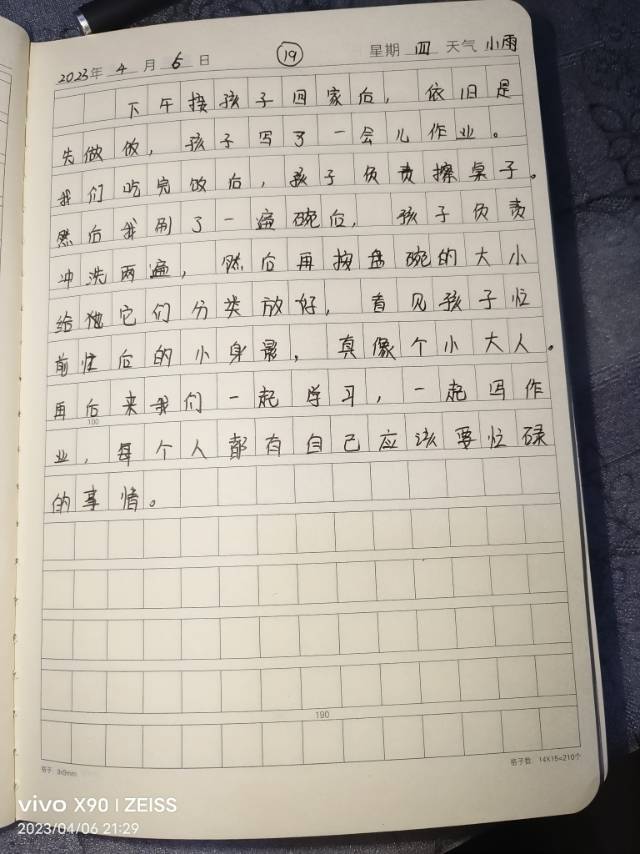 2023年 4 月 6 日 19 星期 四 天气 小雨
下午接孩子回家后，依旧是
先做饭，孩子写了一会儿作业。
我们吃完饭后，孩子负责擦桌子。
然后我刷了一遍碗后，孩子负责
冲洗两遍，然后再按盘碗的大小
给它们分类放好，看见孩子忙
前忙后的小身影，真像个小大人。
再后来我们一起学习，一起写作
100
业，每个人都有自己应该要忙碌
的事情。
190
格子: 9x9mm 格子数: 14X15=210个
vivo X90 | ZEISS
2023/04/06 21:29